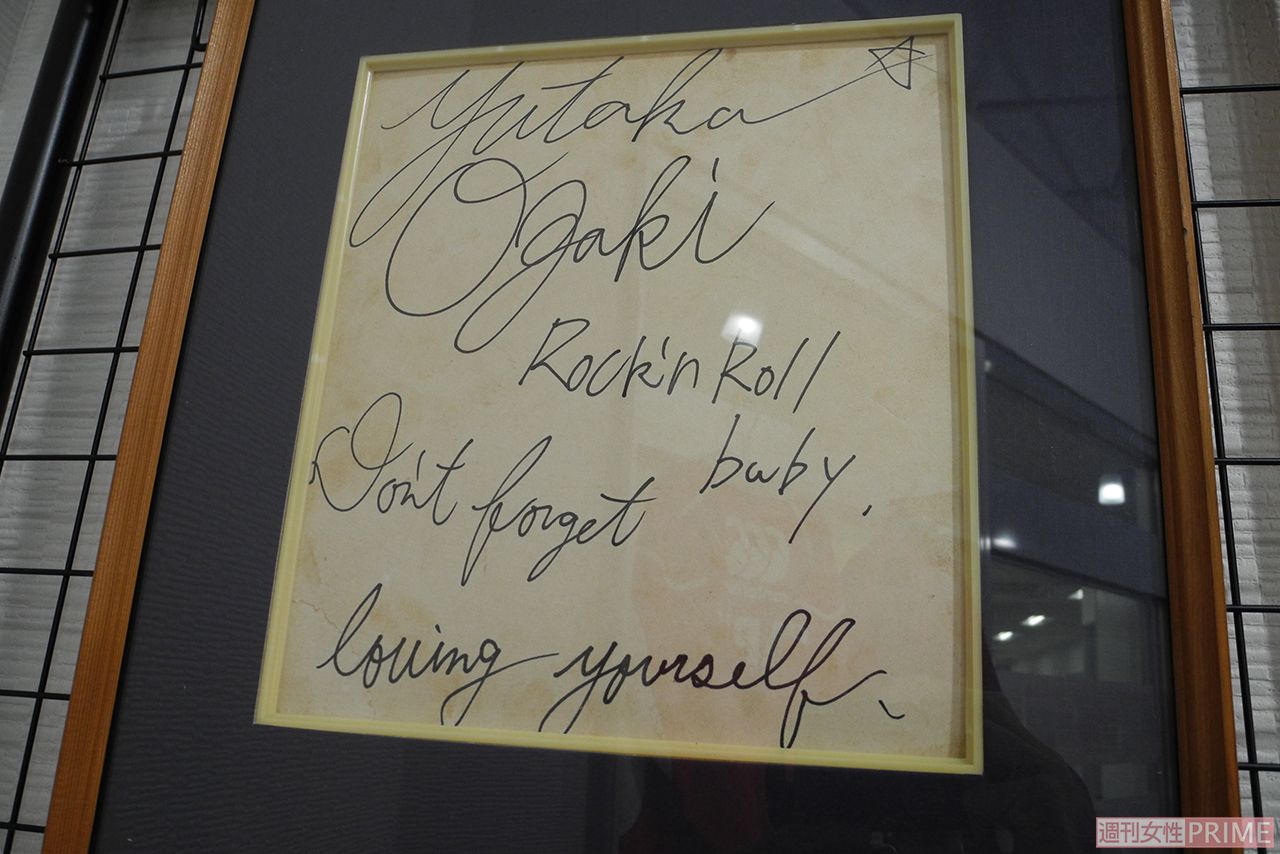 Yutaka ☆
Ozaki
Rock'n Roll
baby.
Don't forget
loving yourself、
週刊女性PRIME